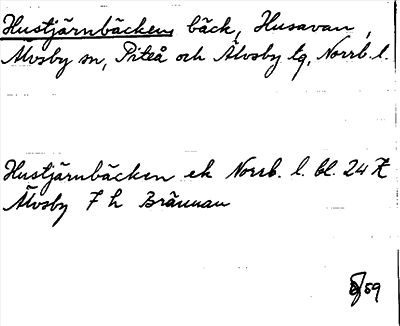 Hustjärnbäcken, bäck, Husavan,
Älvsby sn, Piteå och Älvsby tg, Norrb. l.
Hustjärnbäcken ek Norrb. l. bl. 24
Älvsby 7 h Brännan
/59